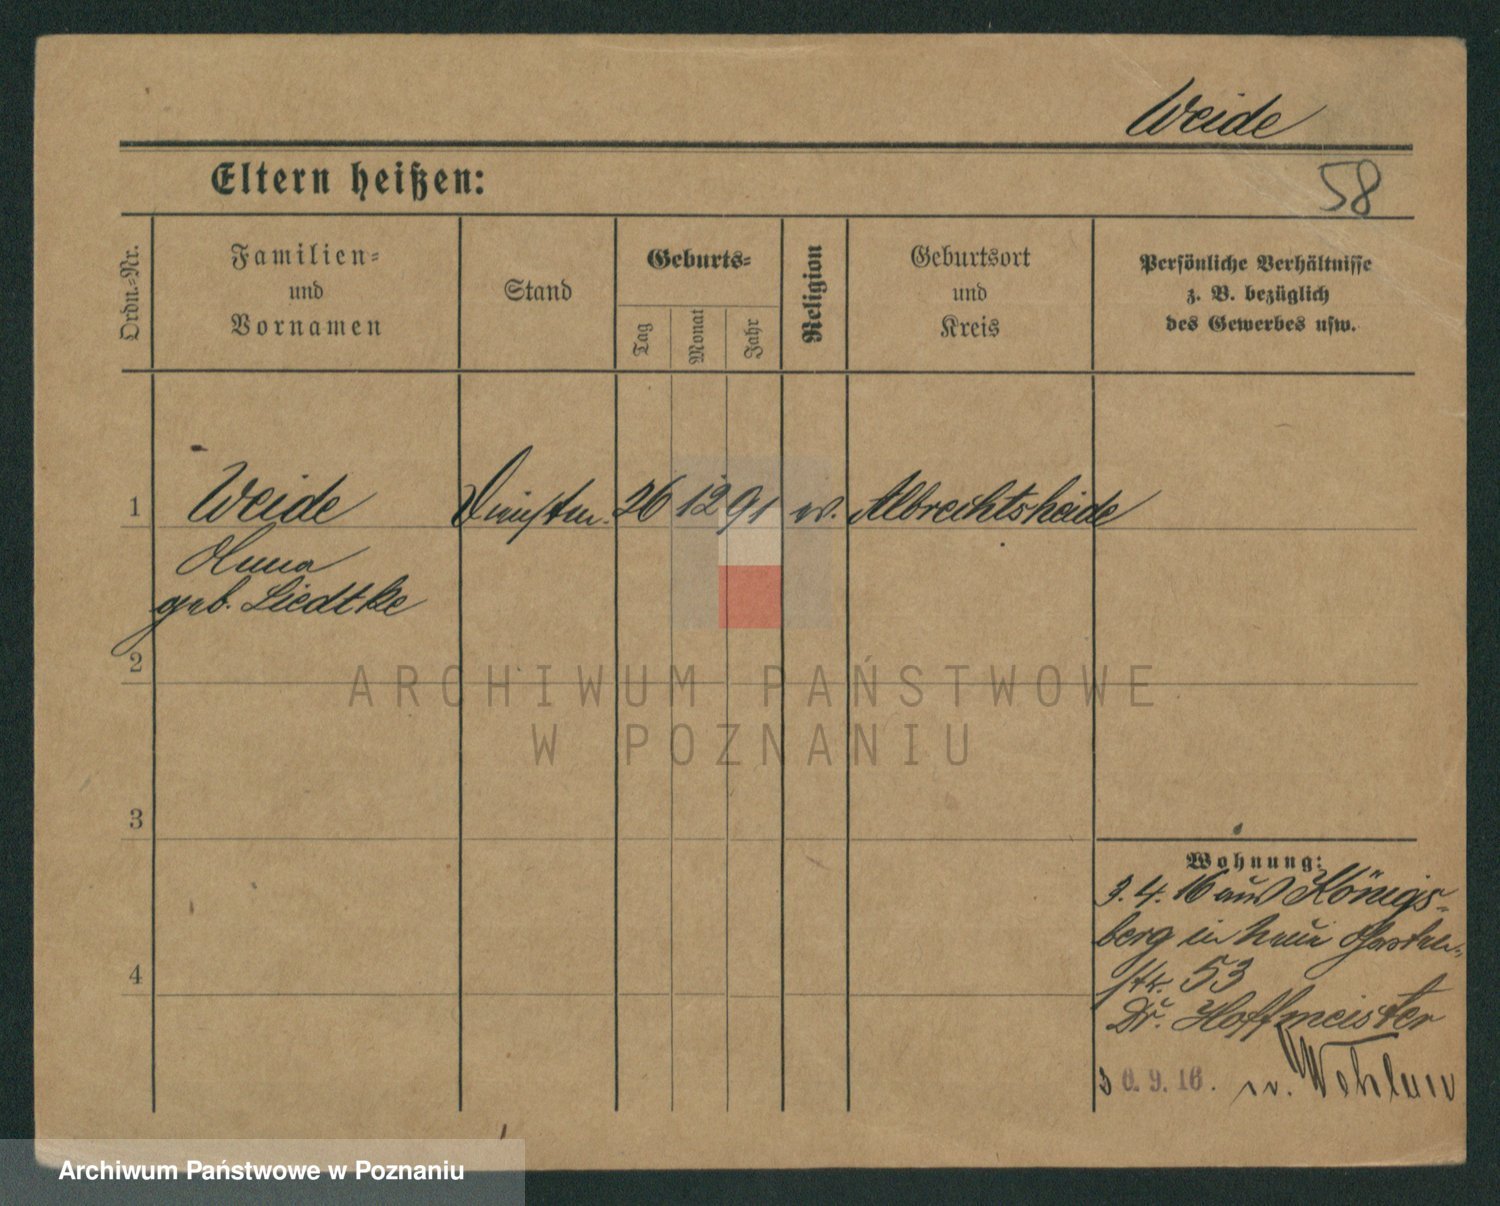 Weide
Eltern heißen:
58
Ordn.-Nr.
Familien-
und
Vornamen
Stand
Geburts-
Tag
Monat
Jahr
Religion
Geburtsort
und
Kreis
Persönliche Verhältnisse
z. B. bezüglich
des Gewerbes usw.
1 Weide 26 12 91 ev. Albrechtsheide
geb. Liedtke
2
ARCHIWUM PAŃSTWOWE
W POZNANIU
3
Wohnung:
3. 4. 16 aus Königs-
berg in
str. 53
Dr. Hoffmeister
30.9.16. n. Wohlau
4
Archiwum Państwowe w Poznaniu